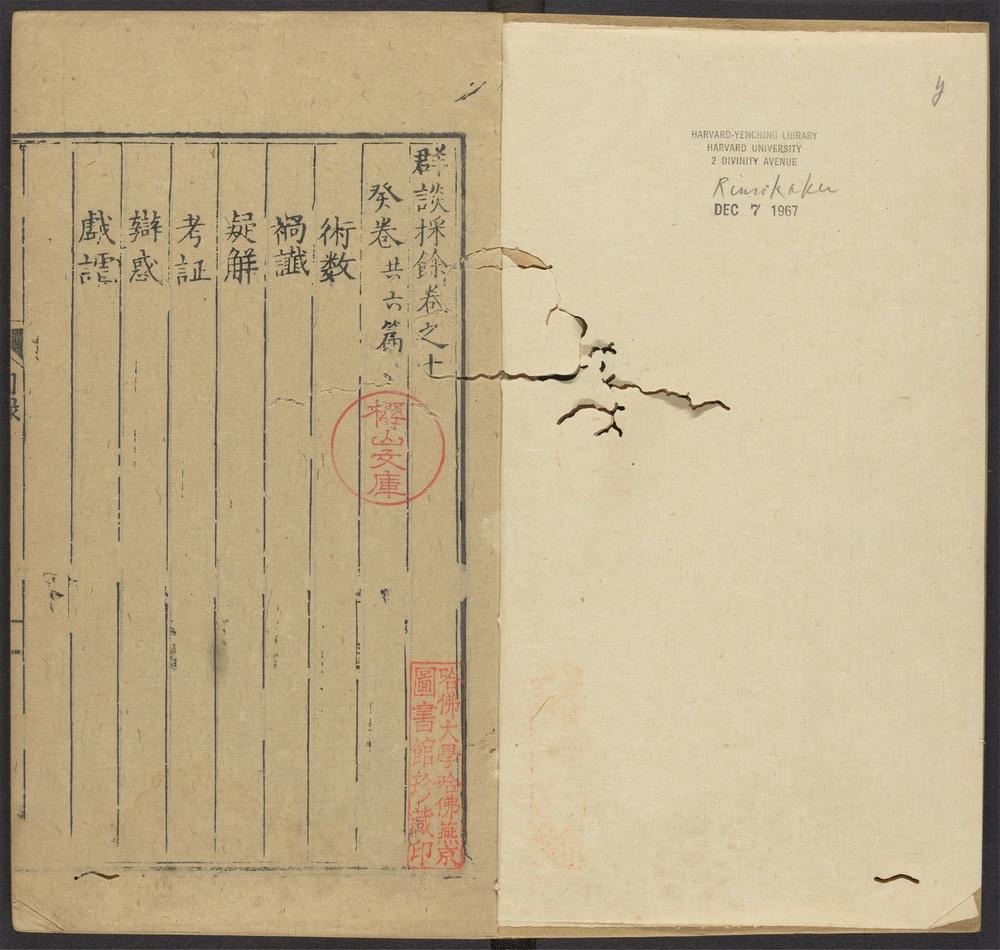 HARVARD-YENCHING LIBRARY
HARVARD UNIVERSITY
2 DIVINITY AVENUE
Rinrokaku
DEC 7 1967
群談採餘卷之十
癸卷共六篇
術数
禍讖
疑觧
考証
辯惑
戱謔
樱山文庫
哈佛大學哈佛燕京
圖書館珍藏印